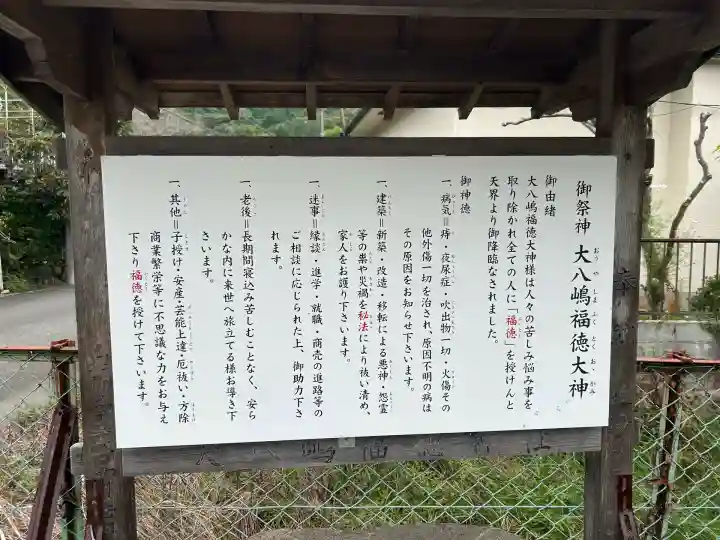 御祭神 大八嶋福徳大神
おおやしまふくとくおおかみ
御由緒
大八嶋福徳大神様は人々の苦しみ悩み事を
取り除かれ全ての人に「福徳」を授けんと
天界より御降臨なされました。
御神徳
一、病気＝痔・夜尿症・吹出物一切・火傷その
他外傷一切を治され、原因不明の病は
その原因をお知らせ下さいます。
一、建築＝新築・改造・移転による悪神・怨霊
等の祟や災禍を秘法により祓い清め、
家人をお護り下さいます。
一、迷事＝縁談・進学・就職・商売の進路等の
ご相談に応じられた上、御助力下さ
れます。
一、老後＝長期間寝込み苦しむことなく、安ら
かな内に来世へ旅立てる様お導き下
さいます。
一、其他＝子授け・安産・芸能上達・厄祓い・方除
商業繁栄等に不思議な力をお与え
下さり福徳を授けて下さいます。